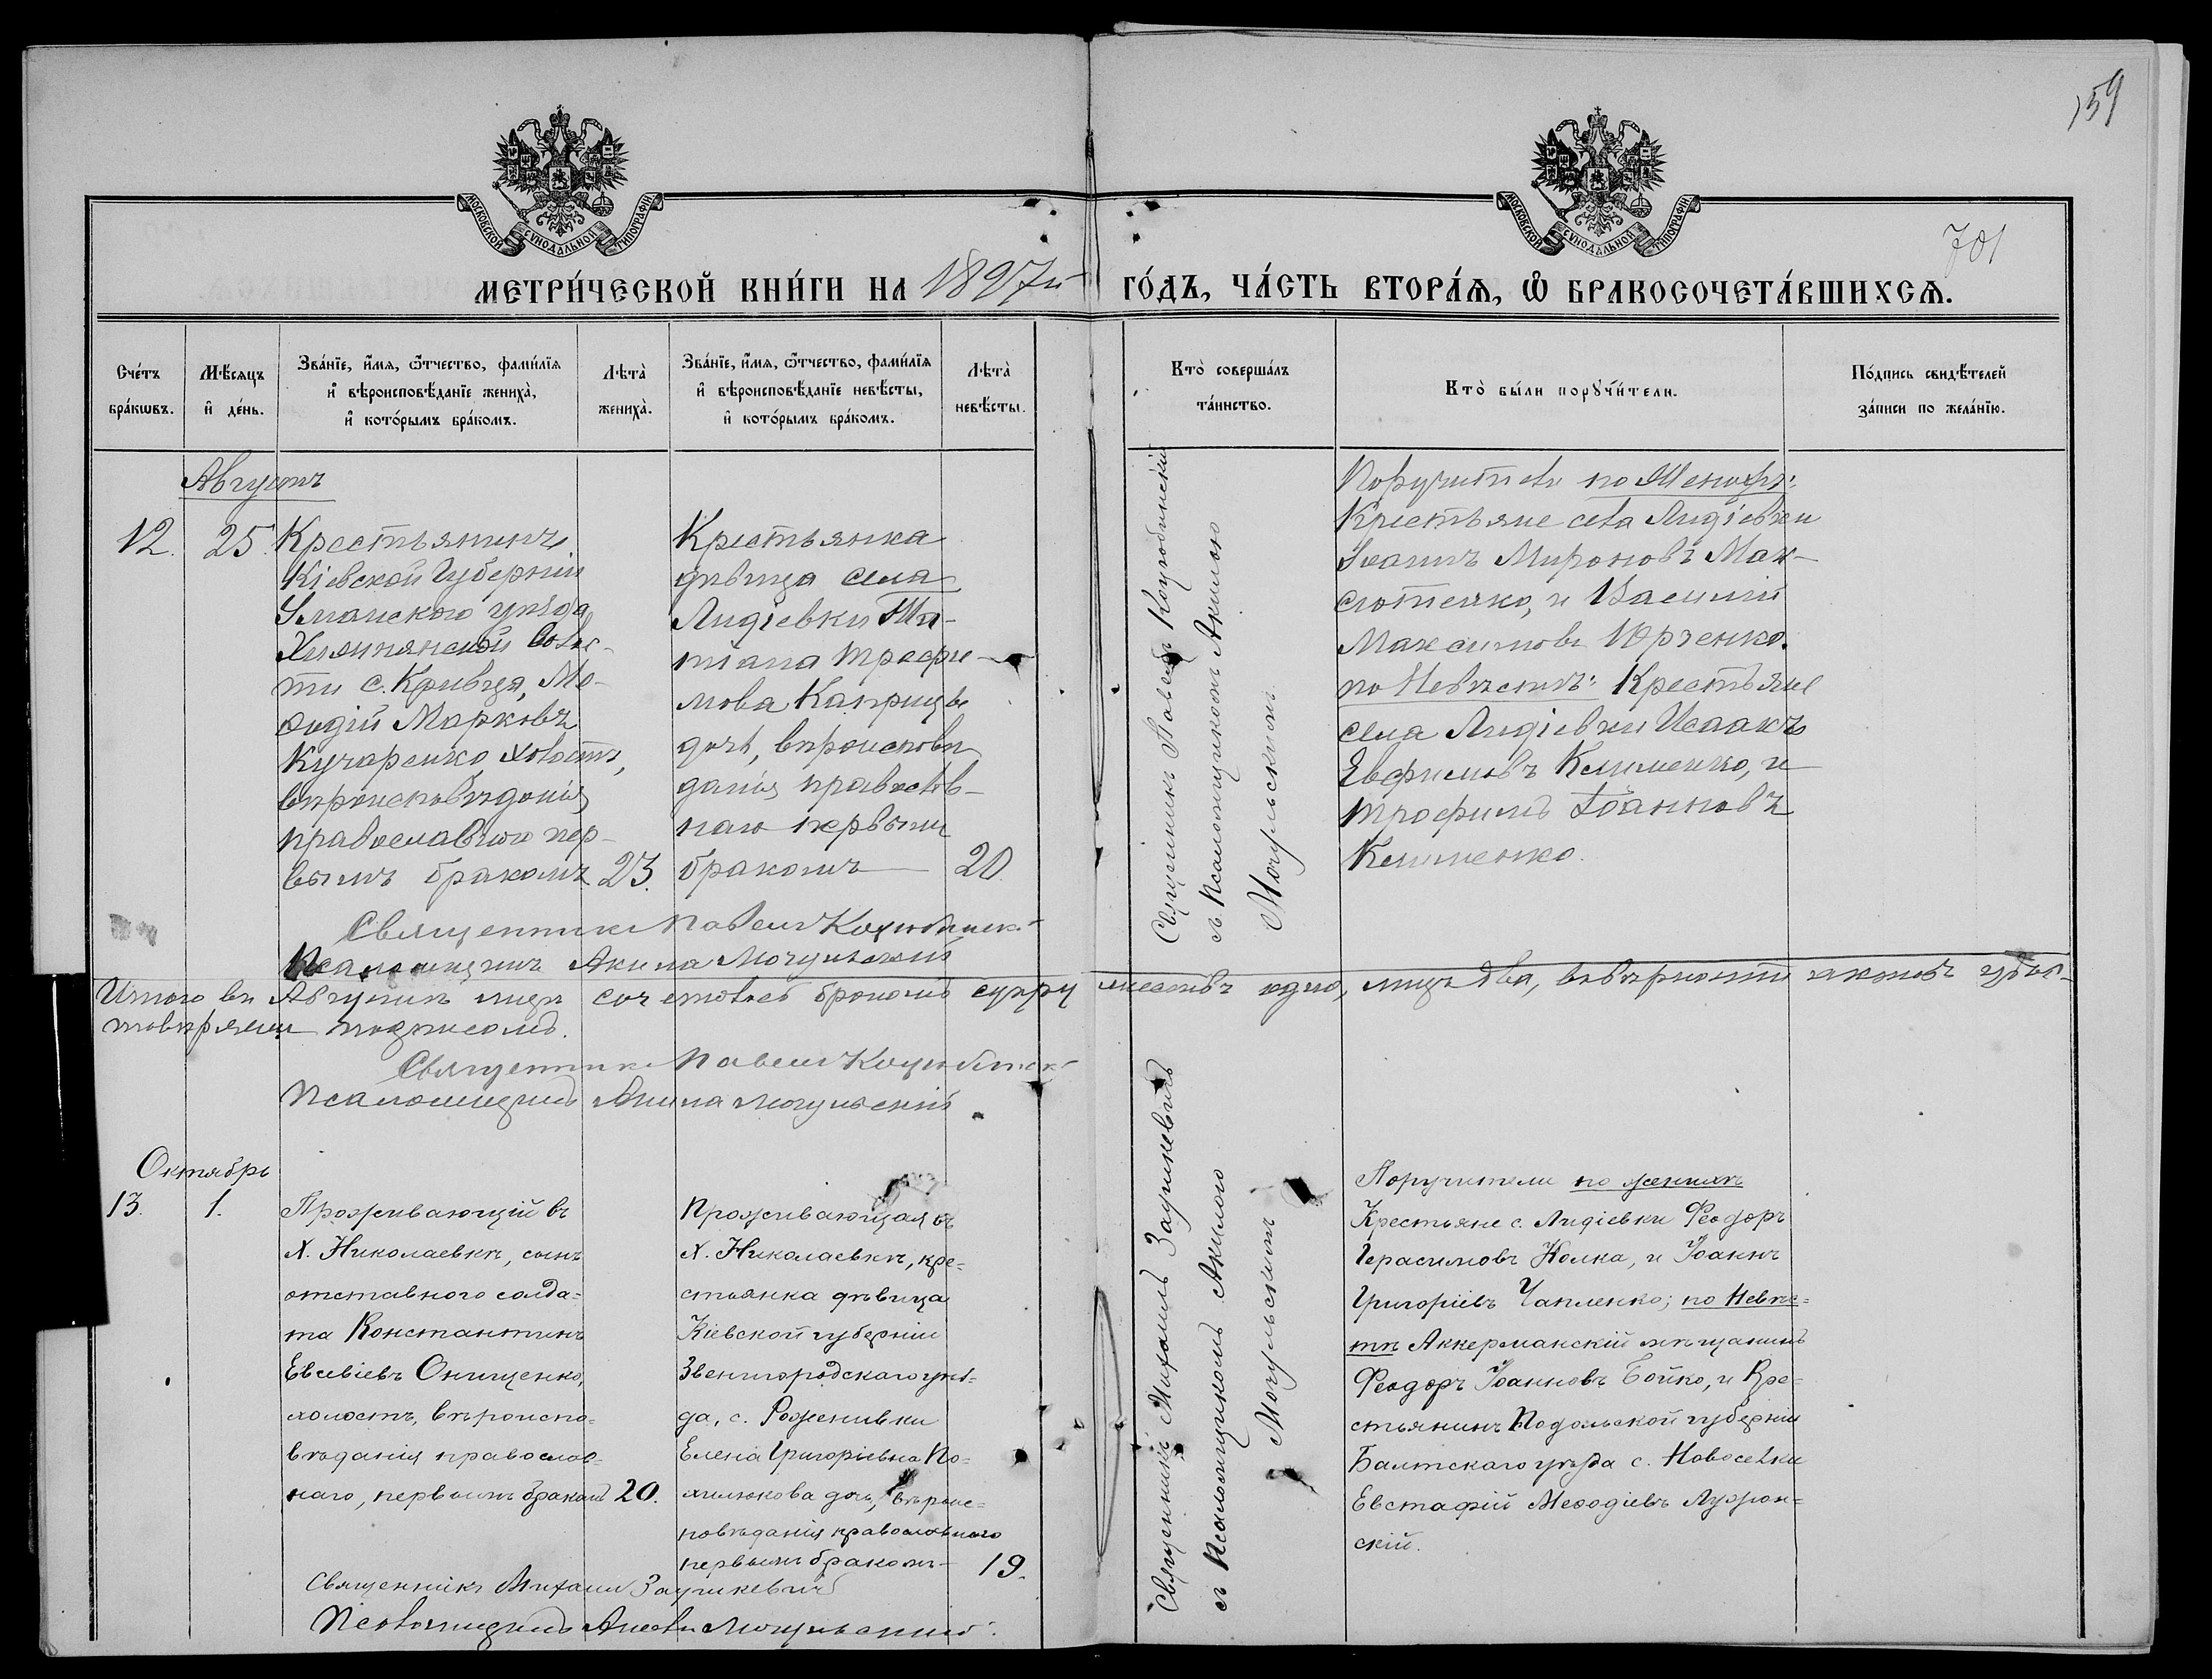 159
МОСКОВСКОЙ СѴНОДАЛЬНОЙ ТИПОГРАФІИ
МОСКОВСКОЙ СѴНОДАЛЬНОЙ ТИПОГРАФІИ
701
МЕТРИ́ЧЕСКОЙ КНИ́ГИ НА 1897й ГО́ДЪ, ЧА́СТЬ ВТОРА́Ѧ, Ѡ БРАКОСОЧЕТА́ВШИХСѦ.
Сче́тъ бра́кѡвъ.
Мѣ́сѧцъ и҆ де́нь.
Зва́нїе, и҆́мѧ, ѻ҆́тчество, фами́лїѧ
и҆ вѣроисповѣ́данїе жениха̀,
и҆ кото́рымъ бра́комъ.
Лѣта̀ жениха̀.
Зва́нїе, и҆́мѧ, ѻ҆́тчество, фами́лїѧ
и҆ вѣроисповѣ́данїе невѣ́сты,
и҆ кото́рымъ бра́комъ.
Лѣта̀ невѣ́сты.
Кто̀ соверша́лъ
та́инство.
Кто̀ бы́ли порꙋчи́тели.
По́дпись свидѣ́телей
за́писи по жела́нїю.
Августъ
12. 25.
Крестьянинъ
Кіевской Губерніи
Уманского уѣзда
Волос-
ти с. Кривця, Ме-
ѳодій Марковъ
Кучаренко, холостъ,
вѣроисповѣданія
православного пер-
вымъ бракомъ 23.
Крестьянка
дѣвица села
Лидіевки Та-
тіана Трофи-
мова Каприцы
дочь, вѣроисповѣ
данія православ-
наго первымъ
бракомъ — 20.
Священникъ Павелъ Коцюбинскій
съ Псаломщикомъ Акилою
Могульскимъ
Поручители по Женихѣ:
Крестьяне села Лидіевки
Іоаннъ Мироновъ Мак-
сютенко, и Василій
Максимовъ Юрченко.
по Невѣстѣ: Крестьяне
села Лидіевки Исаакъ
Евфимовъ Клименко, и
Трофимъ Іоанновъ
Клименко.
Священникъ Павелъ Коцюбинскій
Псаломщикъ Акила Могульскій
Итого въ Августѣ м-цѣ сочеталось бракомъ супружествъ одно, лицъ два, въ вѣрности актовъ удос-
товѣряемъ подписомъ.
Священникъ Павелъ Коцюбинскій
Псаломщикъ Акила Могульскій
Октябрь
13. 1.
Проживающій въ
х. Николаевкѣ, сынъ
отставного солда-
та Константинъ
Евсевіевъ Онищенко,
холостъ, вѣроиспо-
вѣданія православ-
наго, первымъ бракомъ 20.
Проживающая въ
х. Николаевкѣ, кре-
стьянка дѣвица
Кіевской губерніи
Звенигородскаго уѣз-
да, с. Роженивки
Елена Григоріевна По-
хилюкова дочь, вѣроис-
повѣданія православнаго
первымъ бракомъ — 19.
Священникъ Михаилъ Заушкевичъ
съ Псаломщикомъ Акилою
Могульскимъ
Поручители по женихѣ
Крестьяне с. Лидіевки Феодоръ
Герасимовъ Номка, и Іоаннъ
Григоріевъ Чапленко; по Невѣс-
тѣ Аккерманскій мѣщанинъ
Феодоръ Іоанновъ Бойко, и Кре-
стьянинъ Подольской губерніи
Балтскаго уѣзда с. Новоселки
Евстафій Меѳодіевъ
скій.
Священникъ Михаилъ Заушкевичъ
Псаломщикъ Акила Могульскій.